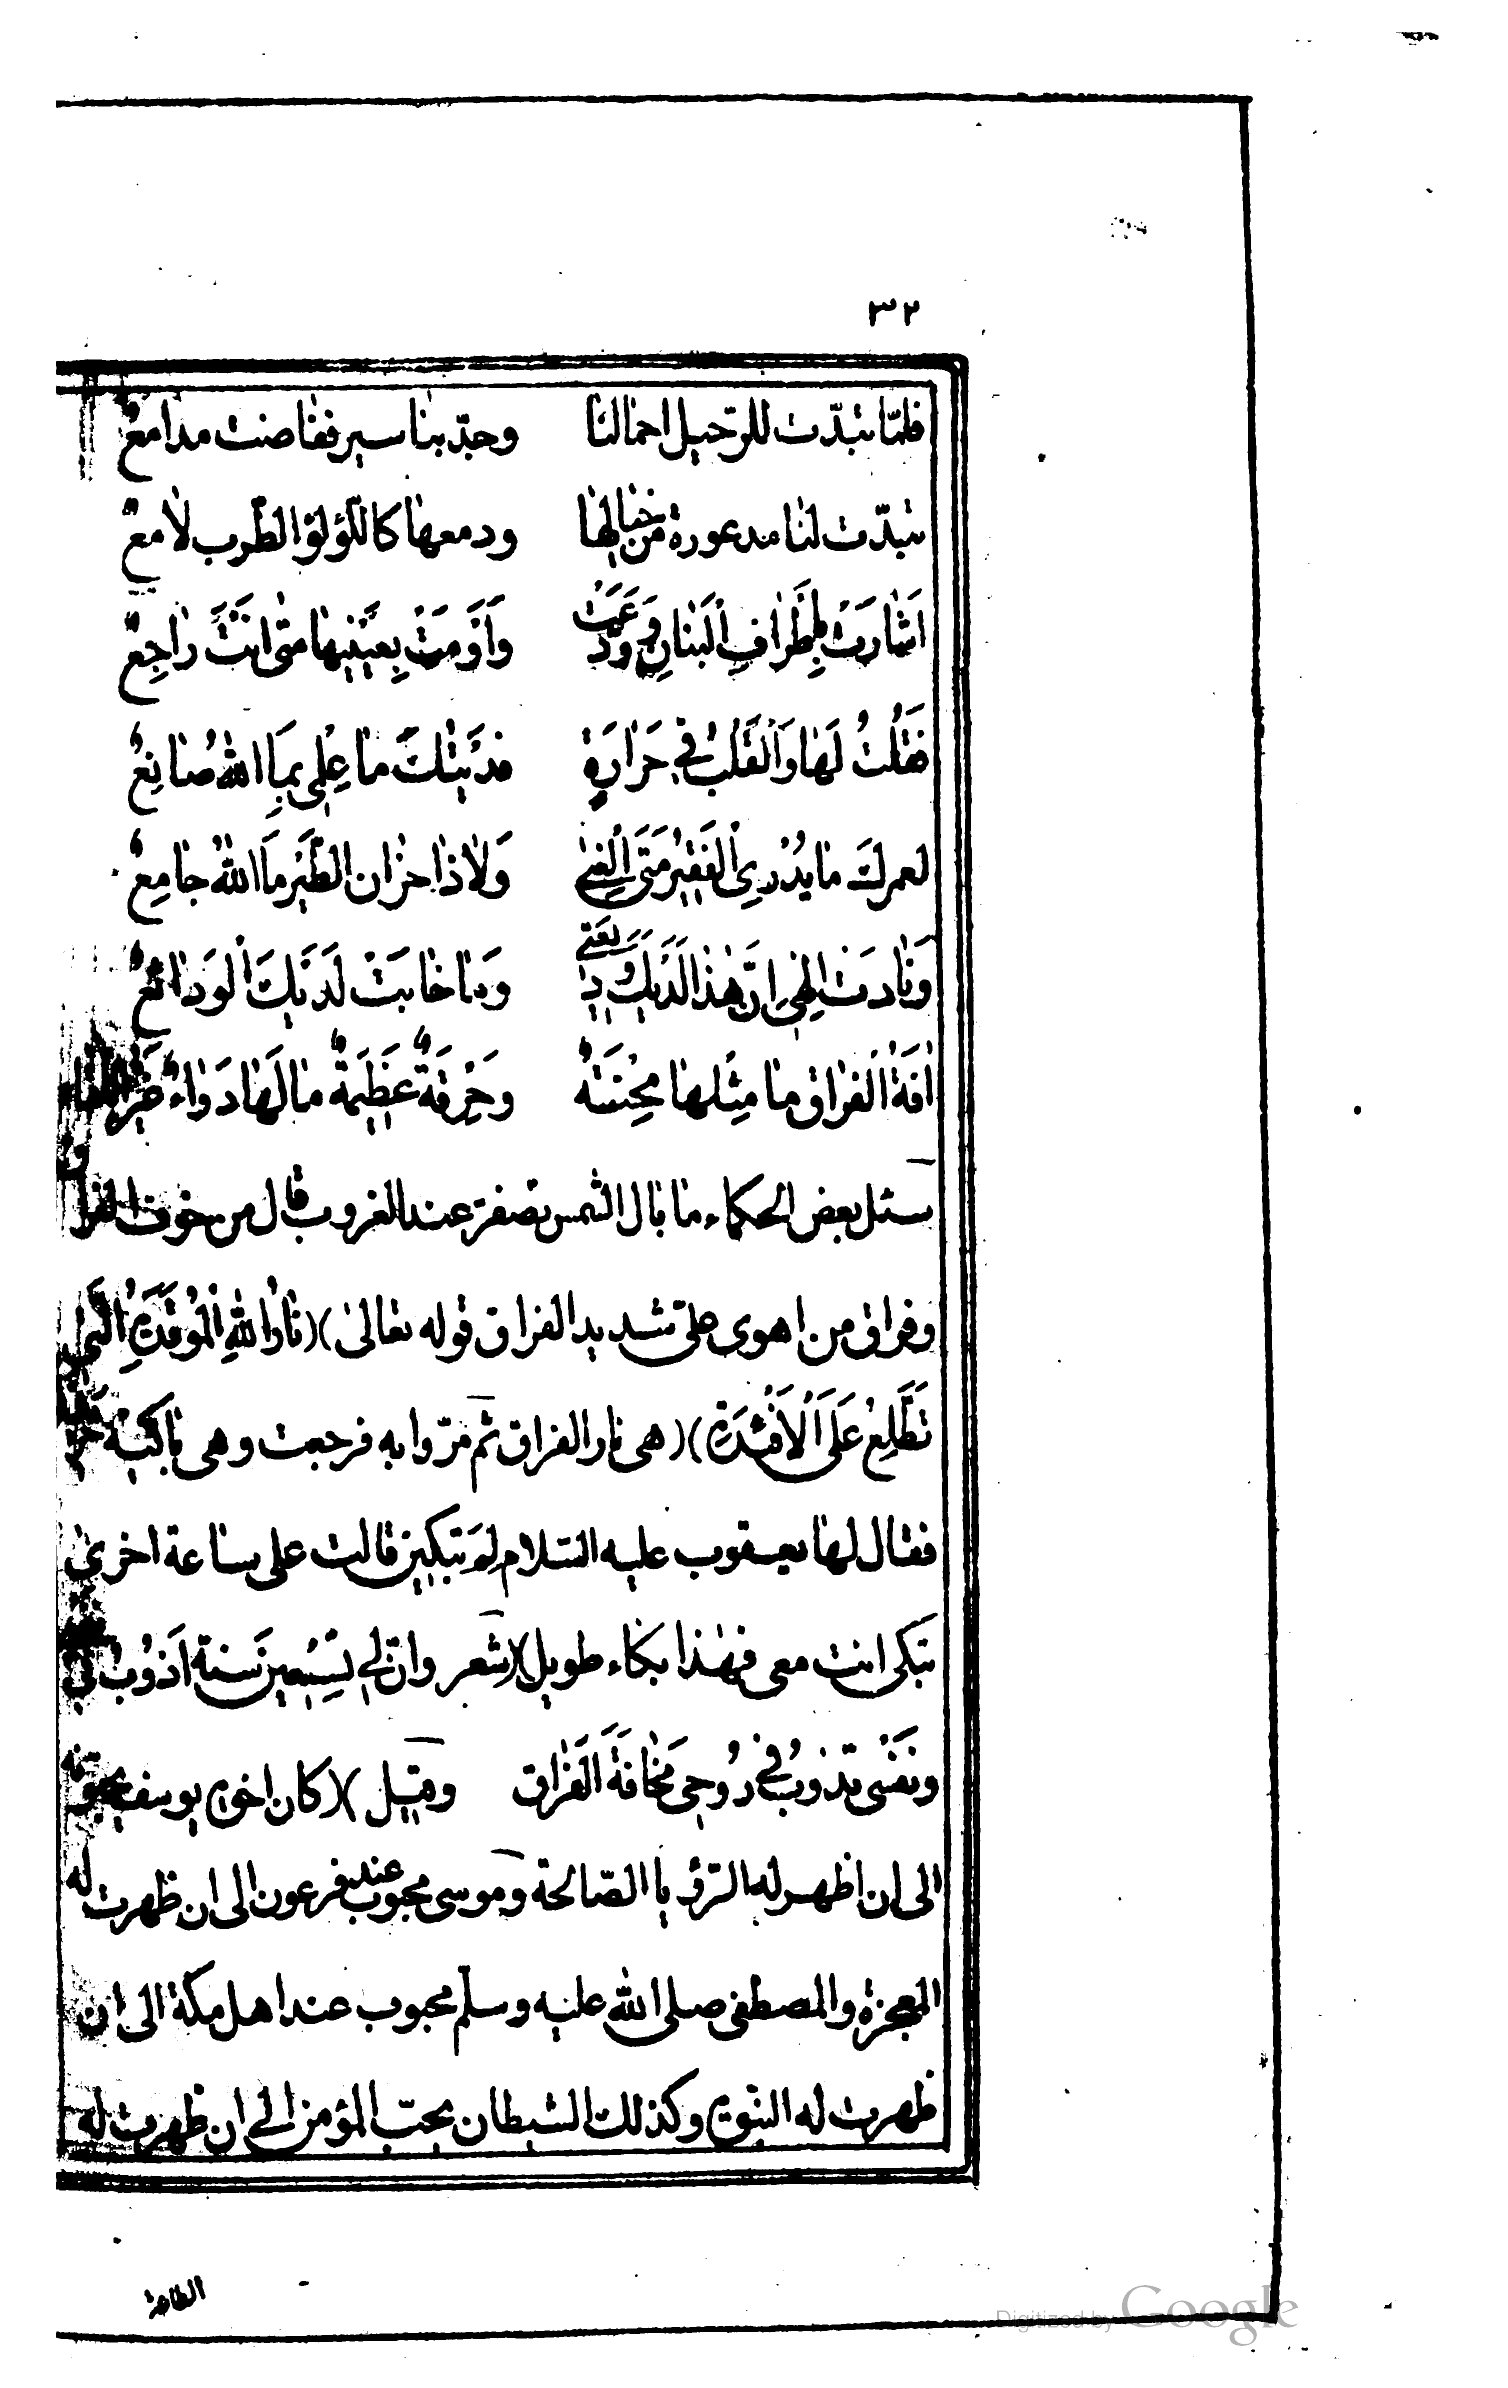 ٣٢
فلمّا تبدّت للرّحيل احمالنا وجدّ بنا سير ففاضت مدامع
تبدّت لنا مدعورة من خبالها ودمعها كاللؤلؤ الطّرب لامع
اَشارَتْ بِاَطرافِ اْلبَنانِ وَوَدَّعَتْ وَاَوْمَتْ بِعَيْنيها متى انتَ راجِع
فقلتُ لَها وَاْلقَلْبُ فِي حَرارَةٍ فدَيْتُكَ ما عِلْمِي بِمَا اللهُ صانِعُ
لعمركَ ما يدْرِي اْلفَقيرُ مَتَى اْلغِنى وَلاذا حزان الطَّيْرِ ماَ اللهُ جامِعُ
وَنادَت اِلهي اِنَّ هذا لَدَيْكَ وَديعَتي وَما خابَتْ لَدَيْكَ اْلوَدائعُ
افَةُ اْلفراقِ ما مِثْلها مِحْنَةٌ وحرْقَةٌ عَظيمَةٌ ما لَها دَواء
سئل بعض الحكماء ما بال الشّمس تصفرّ عند الغروب قال من خوف الفرا
وفراق من اهوى علىّ شديد الفراق قوله تعالى )( نارُ اللهِ اْلموُقَدَةِ الَّتى
تَطَّلِعُ عَلَى اْلاَفْئدَةِ )( هى نار الفراق ثمّ مرّوا به فرجعت وهى باكية
فقال لها يعقوب عليه السّلام لِمَ تبكين قالت على ساعة اخرى
تبكى انت معى فهذا بكاء طويل )( شعر وانّ لي تسْعين سنة اَذوُبُ
ونفسى تذوبُ في رُوحى مخافَةَ الفراق وقيل )( كان اخوة يوسف
الى ان اظهر له الرّؤيا الصّالحة وموسى محبوب عند فرعون الى ان ظهرت له
المعجزة والمصطفى صلى الله عليه وسلّم محبوب عند اهل مكّة الى ان
ظهرت له النبوّة وكذلك الشيطان يحبّ المؤمن الى ان ظهرت له
الطاعة
Digitized by Google